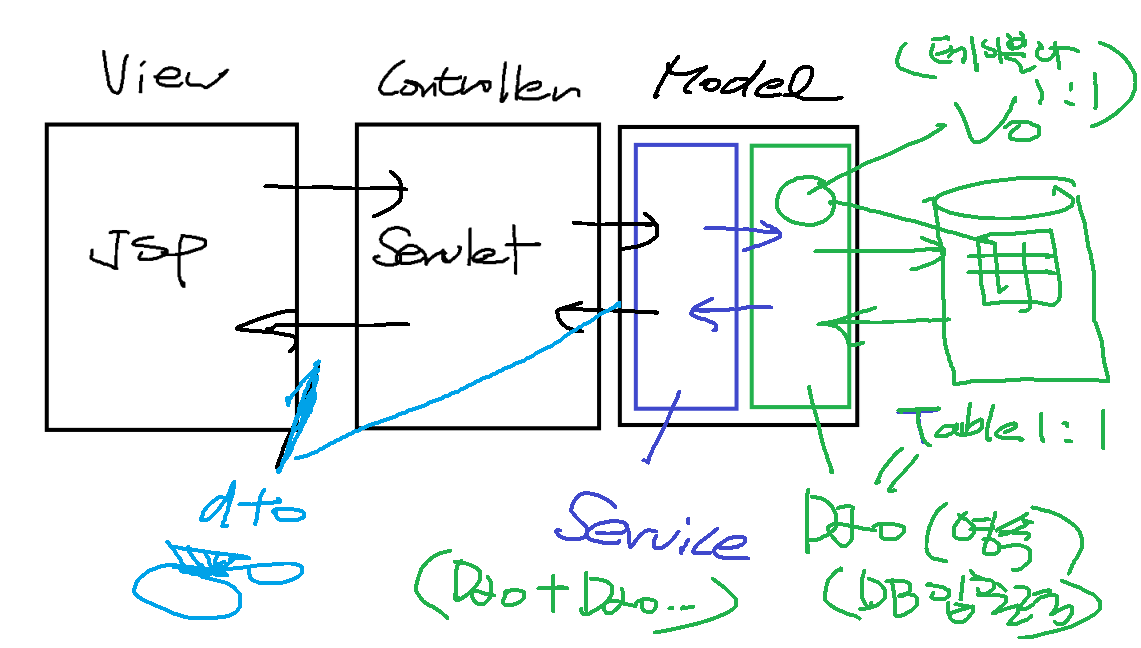 View
Controller
Model
(테이블과
1:1)
VO
JSP
Servlet
Table 1:1
dto
Service
Dao (영속)
(Dao+Dao...)
(DB